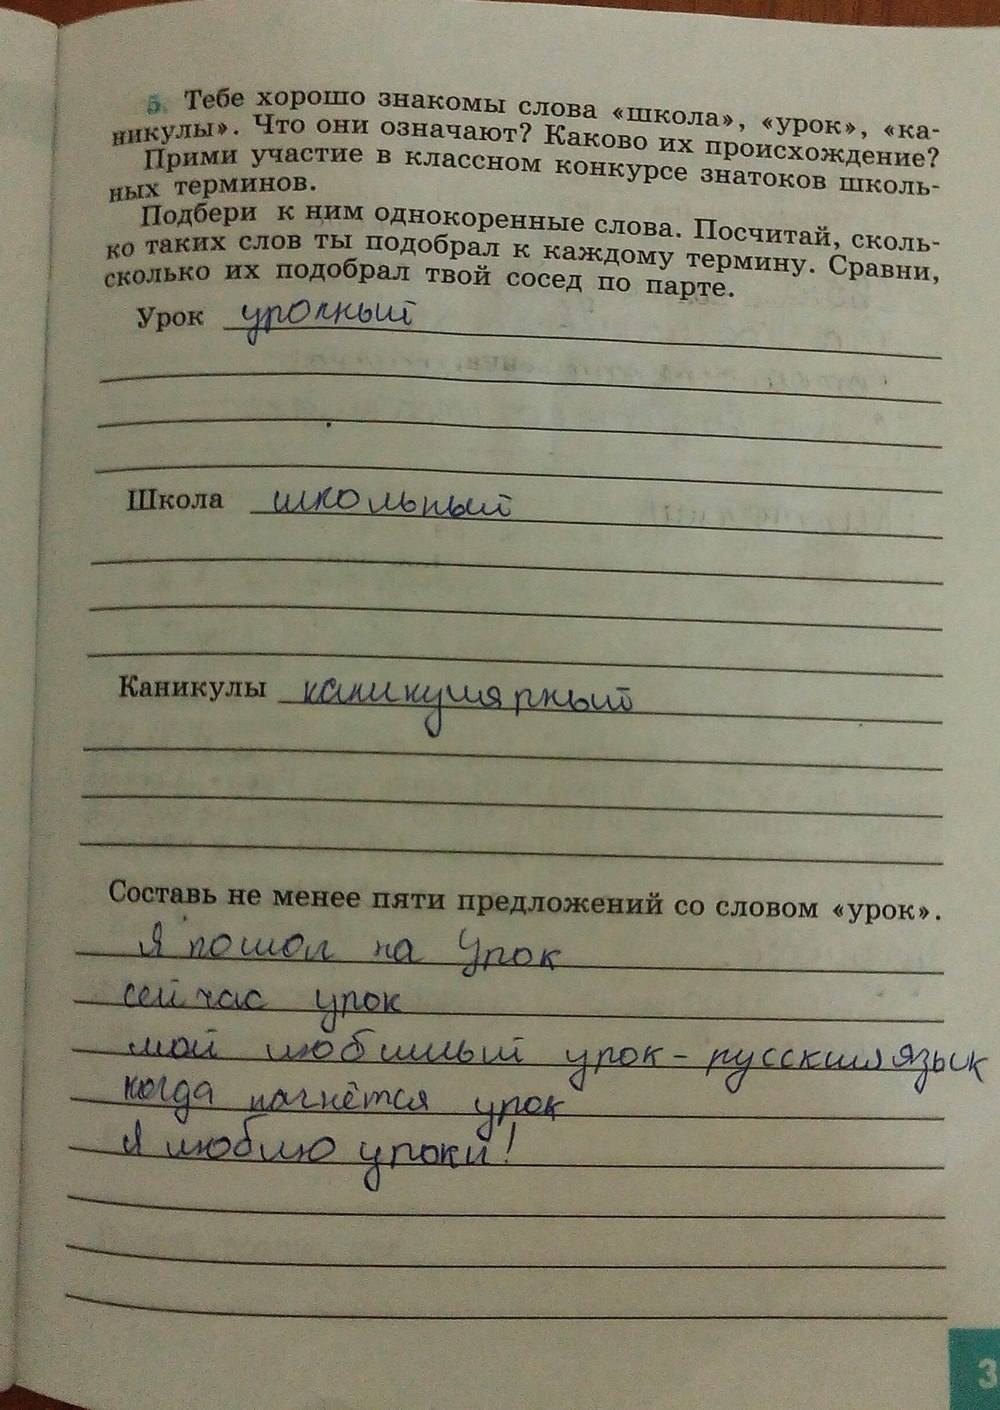 5. Тебе хорошо знакомы слова «школа», «урок», «ка-
никулы». Что они означают? Каково их происхождение?
Прими участие в классном конкурсе знатоков школь-
ных терминов.
Подбери к ним однокоренные слова. Посчитай, сколь-
ко таких слов ты подобрал к каждому термину. Сравни,
сколько их подобрал твой сосед по парте.
Урок урочный
Школа школьный
Каникулы каникулярный
Составь не менее пяти предложений со словом «урок».
Я пошол на Урок
сейчас урок
мой любимый урок - русский язык
когда начнётся урок
Я люблю уроки!
3